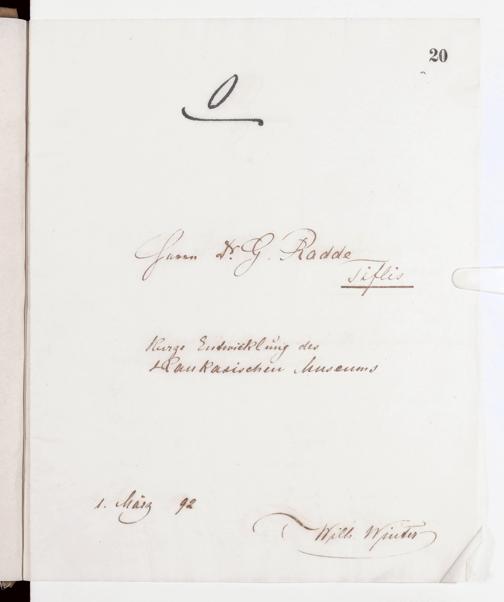 20
Herrn Dr. G. Radde
Tiflis
Kurze Entwicklung des
Kaukasischen Museums
1. März 92
Wilh. Winter